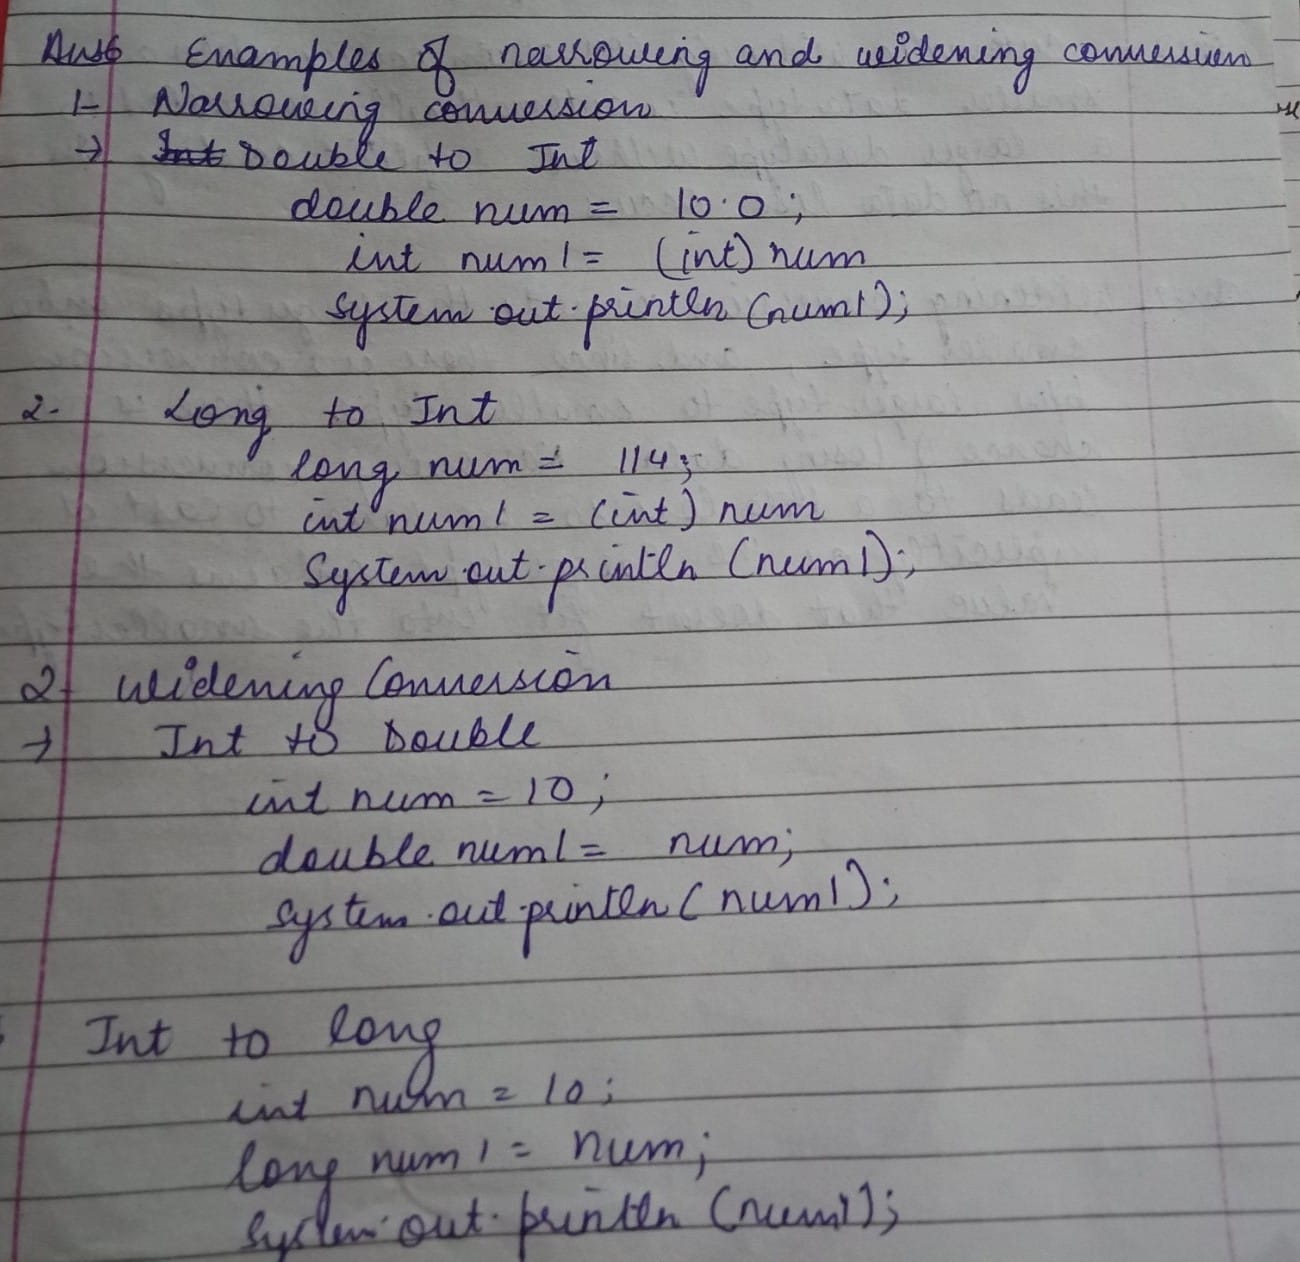 Ans6 Examples of narrowing and widening conversion
1- Narrowing conversion
→ Int Double to Int
double num = 10.0;
int num1 = (int) num
System.out.println (num1);
2- Long to Int
long num = 114;
int num1 = (int) num
System.out.println (num1);
2- Widening Conversion
→ Int to Double
int num = 10;
double num1 = num;
System.out.println (num1);
Int to long
int num = 10;
long num1 = num;
System.out.println (num1);